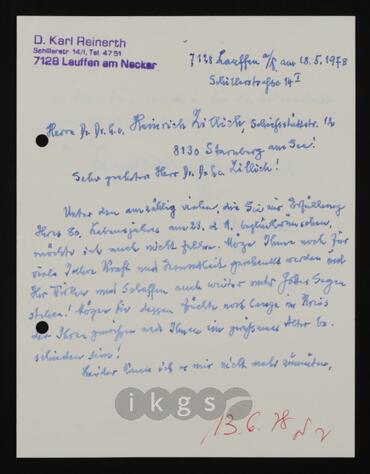 D. Karl Reinerth
Schillerstr 14/I, Tel. 47 51
7128 Lauffen am Neckar
7128 Lauffen a/N am 18.5.1978
Schillerstraße 14 I
Herrn Dr. Dr. h.c. Heinrich Zillich,
8130 Starnberg am See!
Sehr geehrter Herr Dr. Dr. h.c. Zillich!
Unter den unzählig vielen, die Sie zur Erfüllung
Ihres 80. Lebensjahres am 23. d. M. beglückwünschen,
möchte ich auch nicht fehlen. Möge Ihnen noch für
viele Jahre Kraft und Gesundheit geschenkt werden und
Ihr Wirken und Schaffen auch weiter unter Gottes Segen
stehen! Mögen Sie dessen Früchte noch lange im Kreis
der Ihren genießen und Ihnen ein be-
schieden sein!
Leider kann ich es mir nicht mehr zumuten,
ikgs
13.6.78